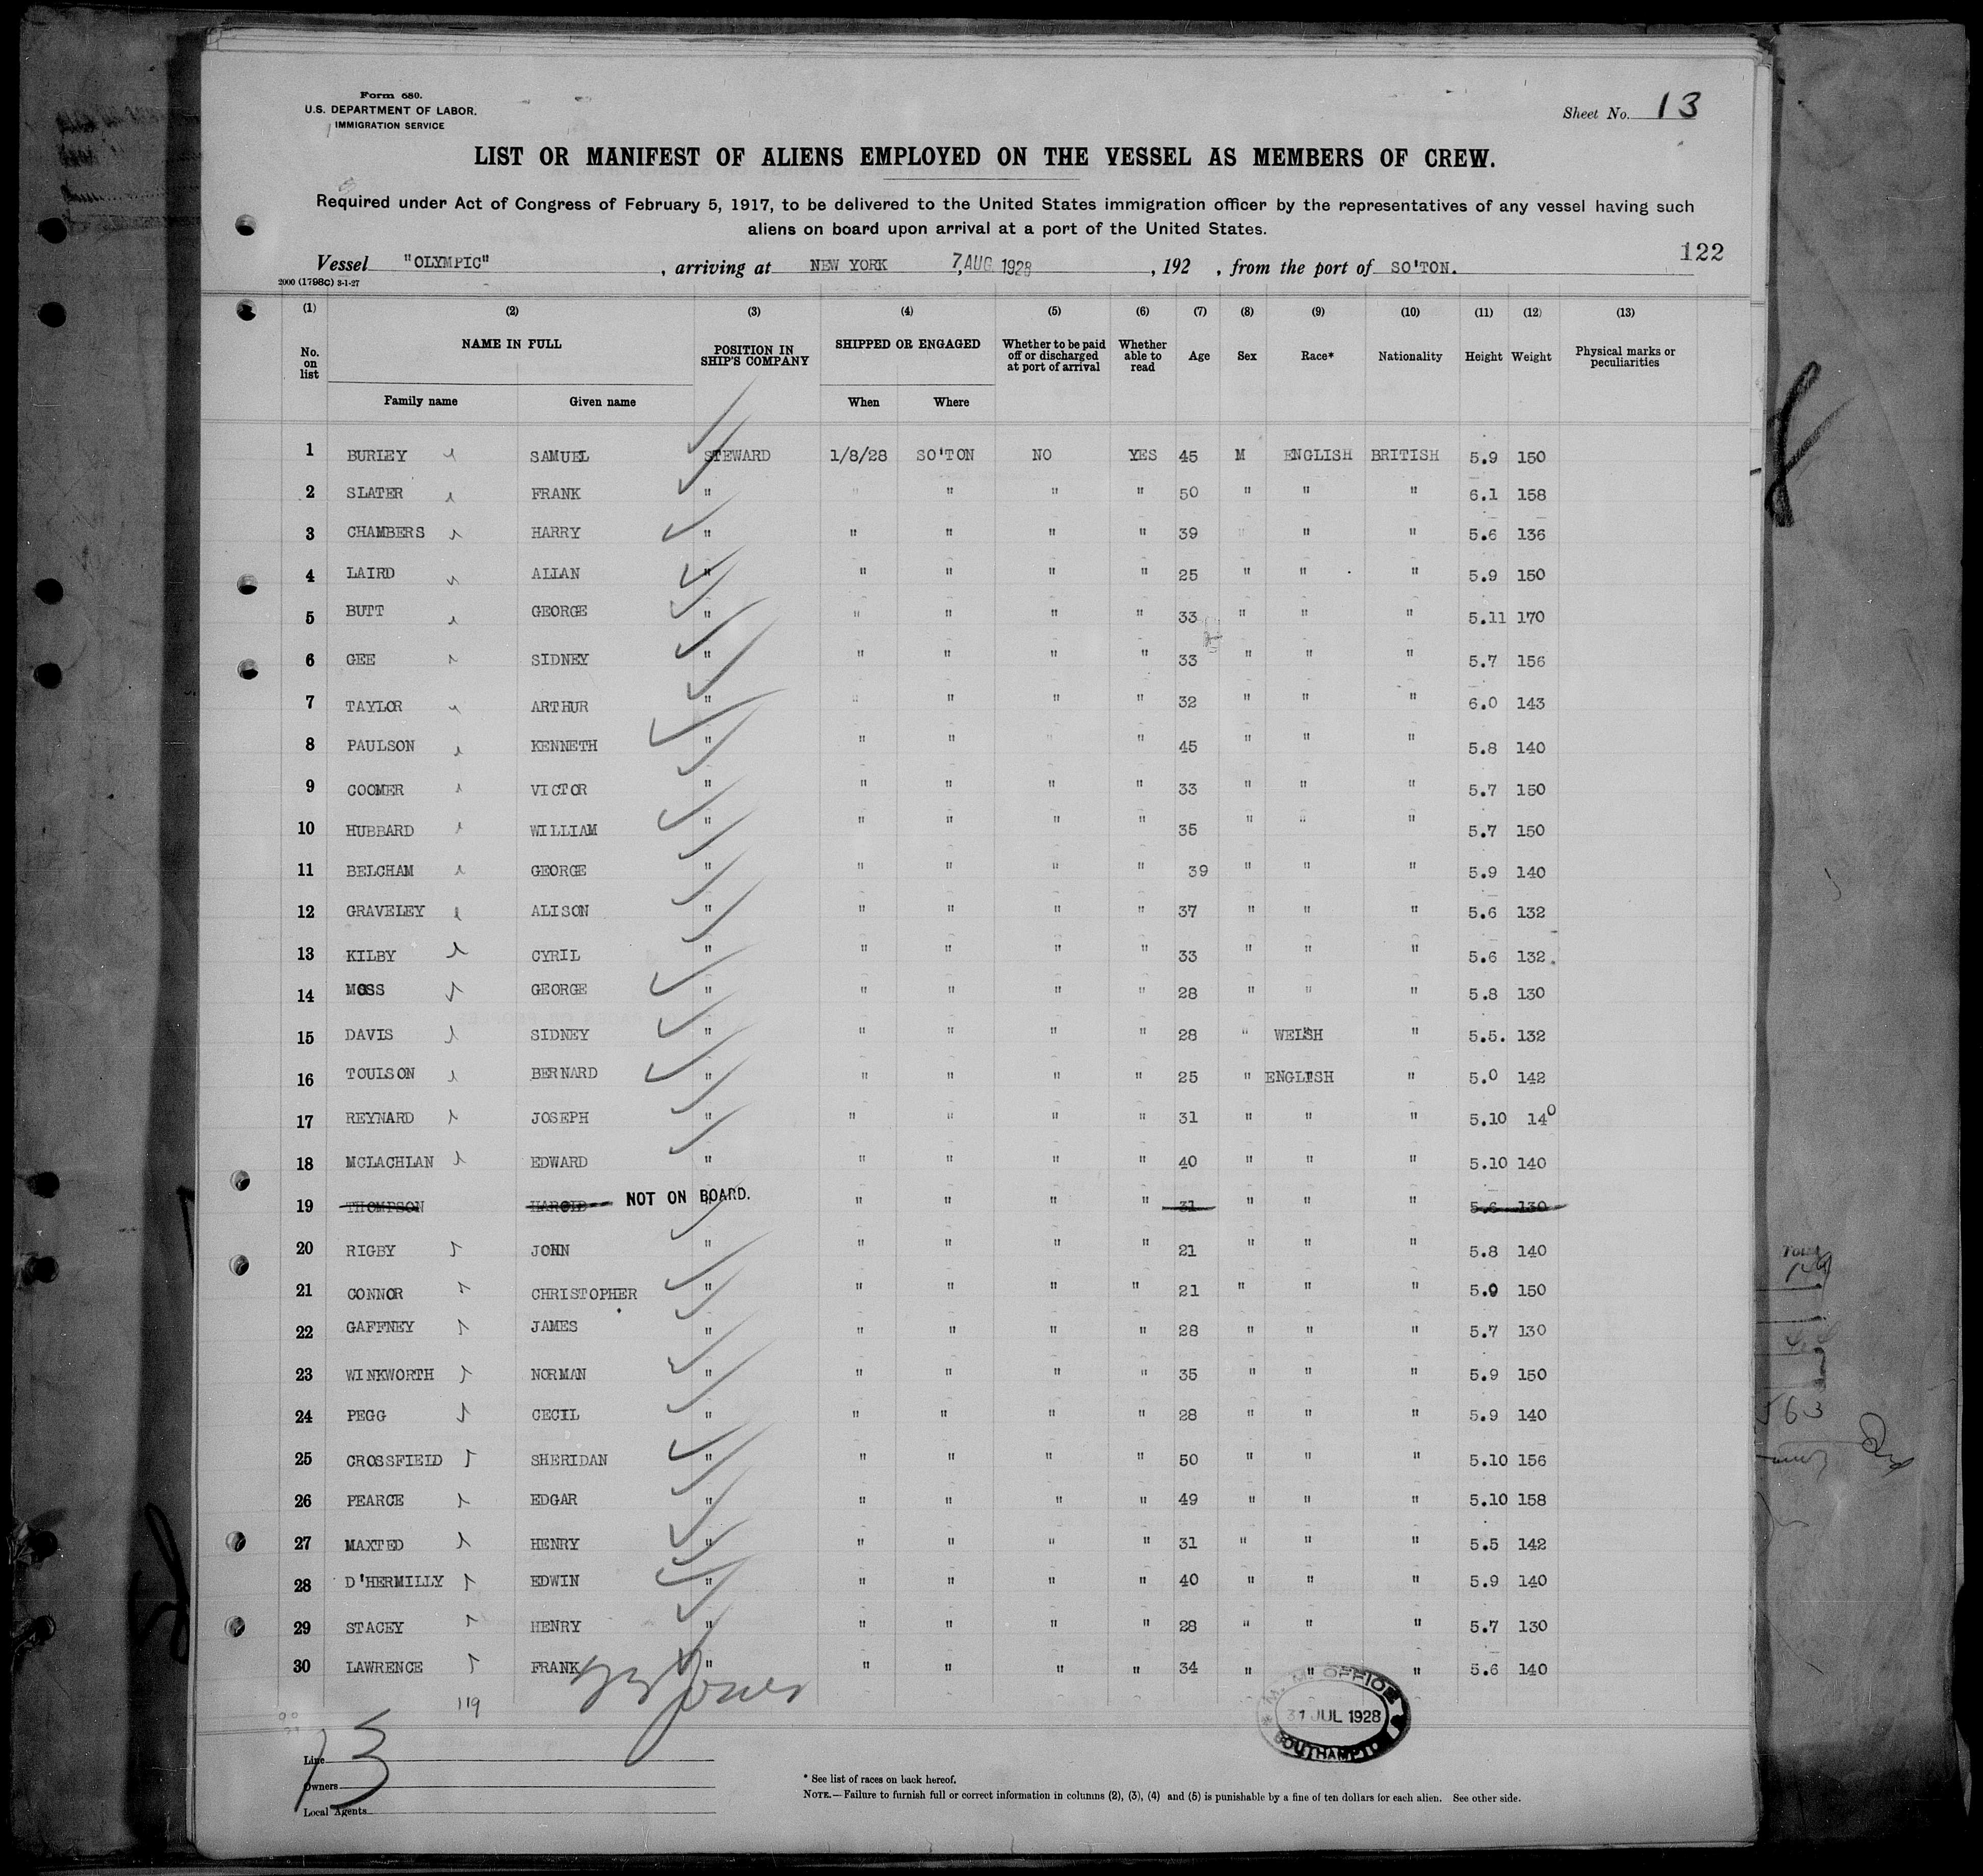 Form 680.
U.S. DEPARTMENT OF LABOR.
IMMIGRATION SERVICE
Sheet No. 13
LIST OR MANIFEST OF ALIENS EMPLOYED ON THE VESSEL AS MEMBERS OF CREW.
Required under Act of Congress of February 5, 1917, to be delivered to the United States immigration officer by the representatives of any vessel having such
aliens on board upon arrival at a port of the United States.
122
Vessel "OLYMPIC", arriving at NEW YORK 7, AUG 1928, 192 , from the port of SO'TON.
2000 (1798c) 3-1-27
(1) (2) (3) (4) (5) (6) (7) (8) (9) (10) (11) (12) (13)
No. on list NAME IN FULL POSITION IN SHIP'S COMPANY SHIPPED OR ENGAGED Whether to be paid off or discharged at port of arrival Whether able to read Age Sex Race* Nationality Height Weight Physical marks or peculiarities
Family name Given name When Where
1 BURLEY SAMUEL STEWARD 1/8/28 SO'TON NO YES 45 M ENGLISH BRITISH 5.9 150
2 SLATER FRANK " " " " " 50 " " " 6.1 158
3 CHAMBERS HARRY " " " " " 39 " " " 5.6 136
4 LAIRD ALLAN " " " " " 25 " " " 5.9 150
5 BUTT GEORGE " " " " " 33 " " " 5.11 170
6 GEE SIDNEY " " " " " 33 " " " 5.7 156
7 TAYLOR ARTHUR " " " " " 32 " " " 6.0 143
8 PAULSON KENNETH " " " " " 45 " " " 5.8 140
9 COOMER VICTOR " " " " " 33 " " " 5.7 150
10 HUBBARD WILLIAM " " " " " 35 " " " 5.7 150
11 BELCHAM GEORGE " " " " " 39 " " " 5.9 140
12 GRAVELEY ALISON " " " " " 37 " " " 5.6 132
13 KILBY CYRIL " " " " " 33 " " " 5.6 132.
14 MOSS GEORGE " " " " " 28 " " " 5.8 130
15 DAVIS SIDNEY " " " " " 28 " WELSH " 5.5. 132
16 TOULSON BERNARD " " " " " 25 " ENGLISH " 5.0 142
17 REYNARD JOSEPH " " " " " 31 " " " 5.10 140
18 MCLACHLAN EDWARD " " " " " 40 " " " 5.10 140
19 THOMPSON HAROLD NOT ON BOARD. " " " " " 31 " " " 5.6 130
20 RIGBY JOHN " " " " " 21 " " " 5.8 140
21 CONNOR CHRISTOPHER " " " " " 21 " " " 5.0 150
22 GAFFNEY JAMES " " " " " 28 " " " 5.7 130
23 WINKWORTH NORMAN " " " " " 35 " " " 5.9 150
24 PEGG CECIL " " " " " 28 " " " 5.9 140
25 CROSSFIELD SHERIDAN " " " " " 50 " " " 5.10 156
26 PEARCE EDGAR " " " " " 49 " " " 5.10 158
27 MAXTED HENRY " " " " " 31 " " " 5.5 142
28 D'HERMILLY EDWIN " " " " " 40 " " " 5.9 140
29 STACEY HENRY " " " " " 28 " " " 5.7 130
30 LAWRENCE FRANK " " " " " 34 " " " 5.6 140
119
Jones
M. M. OFFICE
31 JUL 1928
SOUTHAMPTO
13
Line
Owners
Local Agents
* See list of races on back hereof.
NOTE.—Failure to furnish full or correct information in columns (2), (3), (4) and (5) is punishable by a fine of ten dollars for each alien. See other side.
Total
563